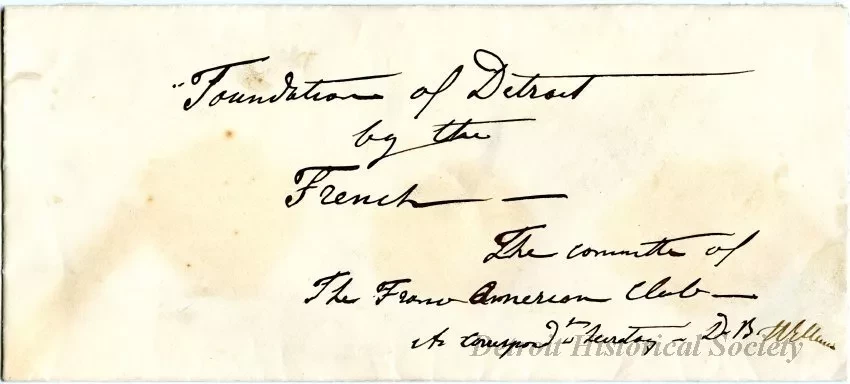 "Foundation of Detroit
by the
French — —
The committe of
The Franco American Club —
its correspond^in Secretary – Dr B.
Detroit Historical Society